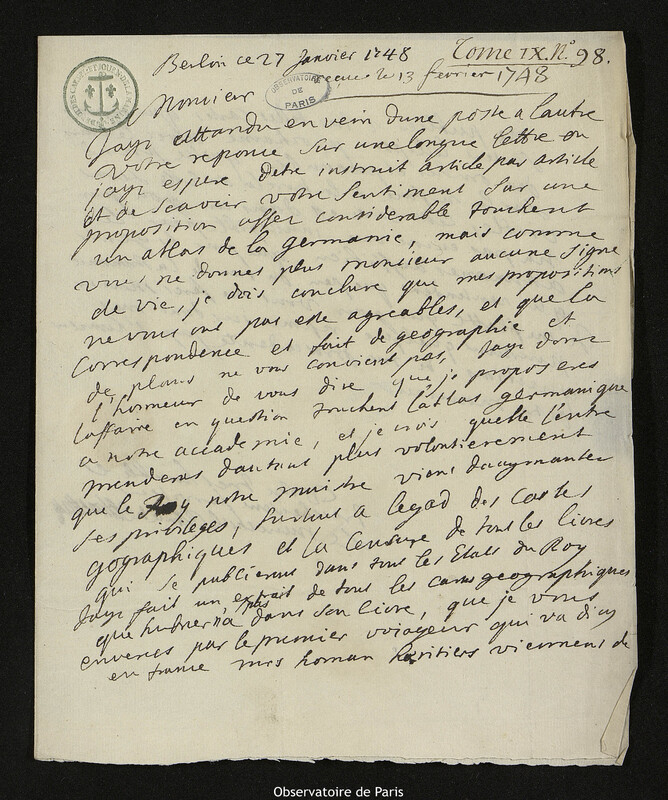 Berlin ce 27 Janvier 1748 Tome IX. N.° 98.
reçue le 13 février 1748
Monsieur
OBSERVATOIRE DE PARIS
Jayı attandu en vein dune poste a lautre
votre reponce sur une longue lettre ou
jayı espere detre instruit article par article
et de scavoir votre sentiment sur une
proposition assez considerable touchent
un atlas de la germanie, mais comme
vous ne donnes plus monsieur aucune signe
de vie, je dois conclure que mes propositions
ne vous ont pas este agreables, et que la
Correspondence et fait de geographie et
de plans ne vous convient pas, Jayı donc
l'honneur de vous dire que je proposeres
laffaire en question touchent latlas germanique
a notre accademie, et je crois quelle lentre
prenderas dautant plus volontierement
que le Roy notre maistre vient daugmanter
ses privileges, surtout a legad des Cartes
gographiques et la Censure de tout les livres
qui se publierons dans tous les Etats du Roy
Jayı fait un extrait de tout les cartes geographiques
que hubner na pas dans son livre, que je vous
enveres par le premier voiageur qui va dicy
en france mrs homan heritiers viennent de
Observatoire de Paris